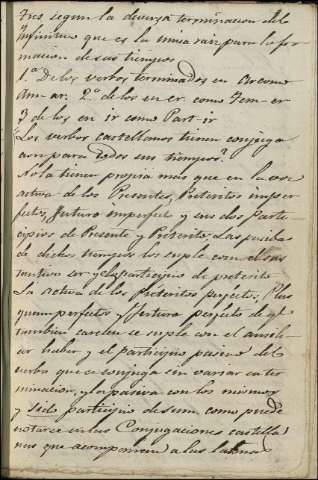 tres segun la diversa terminacion del
Infinitivo que es la unica raiz para la for
macion de sus tiempos
1.ª De los verbos terminados en Ar como
Am-ar. 2.ª de los en er. como Tem-er
3 de los en ir como Part-ir
Los verbos castellanos tienen conjuga
cion para todos sus tiempos?
No la tienen propia mas que en la voz
activa de los Presentes, Preteritos imper
fectos, futuro imperfecto y sus dos parti
cipios de Presente y Preterito. Las pasivas
de dichos tiempos los suple con el aus
y el participio de preterito
La activa de los Préteritos perfectos, Plus
quam perfectos y futuro perfecto de qe
tambien carecen se suple con el ausili
ar haber y el participio pasivo del
verbo que se conjuga sin variar su ter
minacion, y la pasiva con los mismos
y Sido participio de sum, como puede
notarse en las Conjugaciones castella
nas que acompañan a las latinas